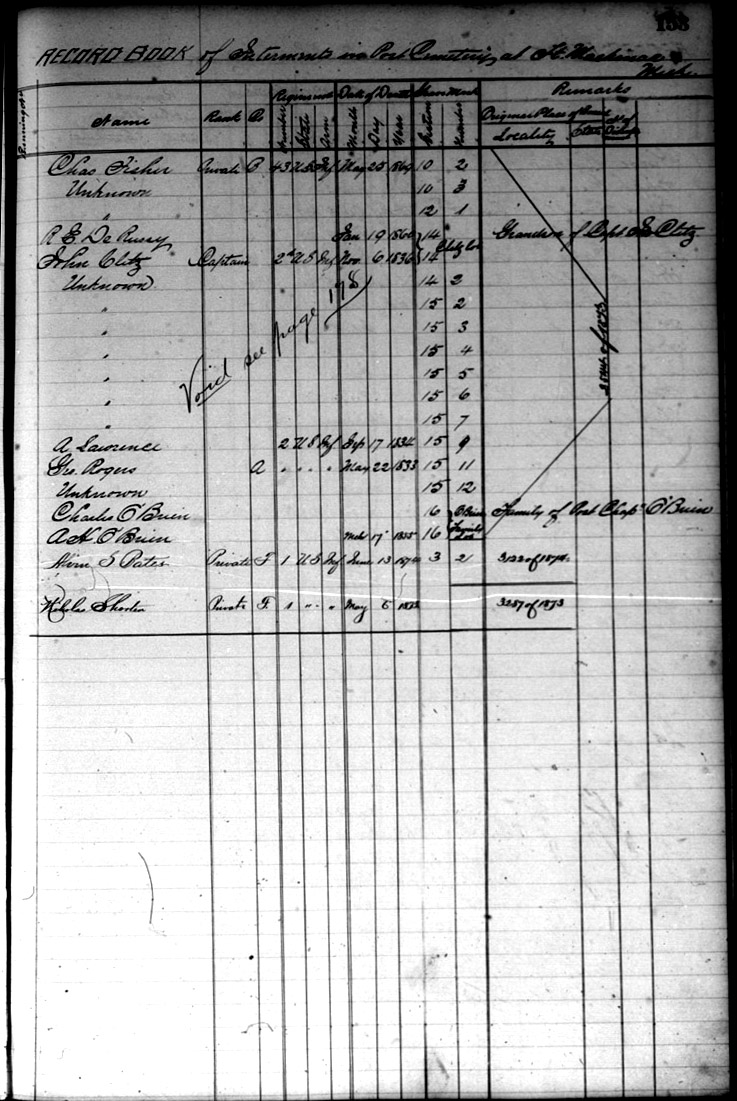 158
RECORD BOOK of Interments in Post Cemetery, at Ft. Mackinac
Mich.
Running No. Name Rank Co Regiment Date of Death Grave Mark Remarks
Number State Arm Month Day Year Section Number Original Place of Locality State
Chas Fisher Private B 43 U S Inf May 25 1869 10 2
Unknown 10 3
" 12 1
R E De Russy Jan 19 1864 14 Clitz Lot Grandson of Capt Jno Clitz
John Clitz Captain 2d U S Inf Nov 6 1836 14
Unknown 14 2
" 15 2
" 15 3
" 15 4
" 15 5
" 15 6
" 15 7
Void see page 178
of 1873
A Lawrence 2 U S Inf Sep 17 1834 15 9
Geo. Rogers A " " " May 22 1833 15 11
Unknown 15 12
Charles O'Brien 16 O'Brien Family Lot Family of Post Chap. O'Brien
A H O'Brien Mch 17 1855 16
S Bates Private F 1 U S Inf June 13 1874 3 2 3122 of 1874
Nicholas Private F 1 " " " May 6 3257 of 1873